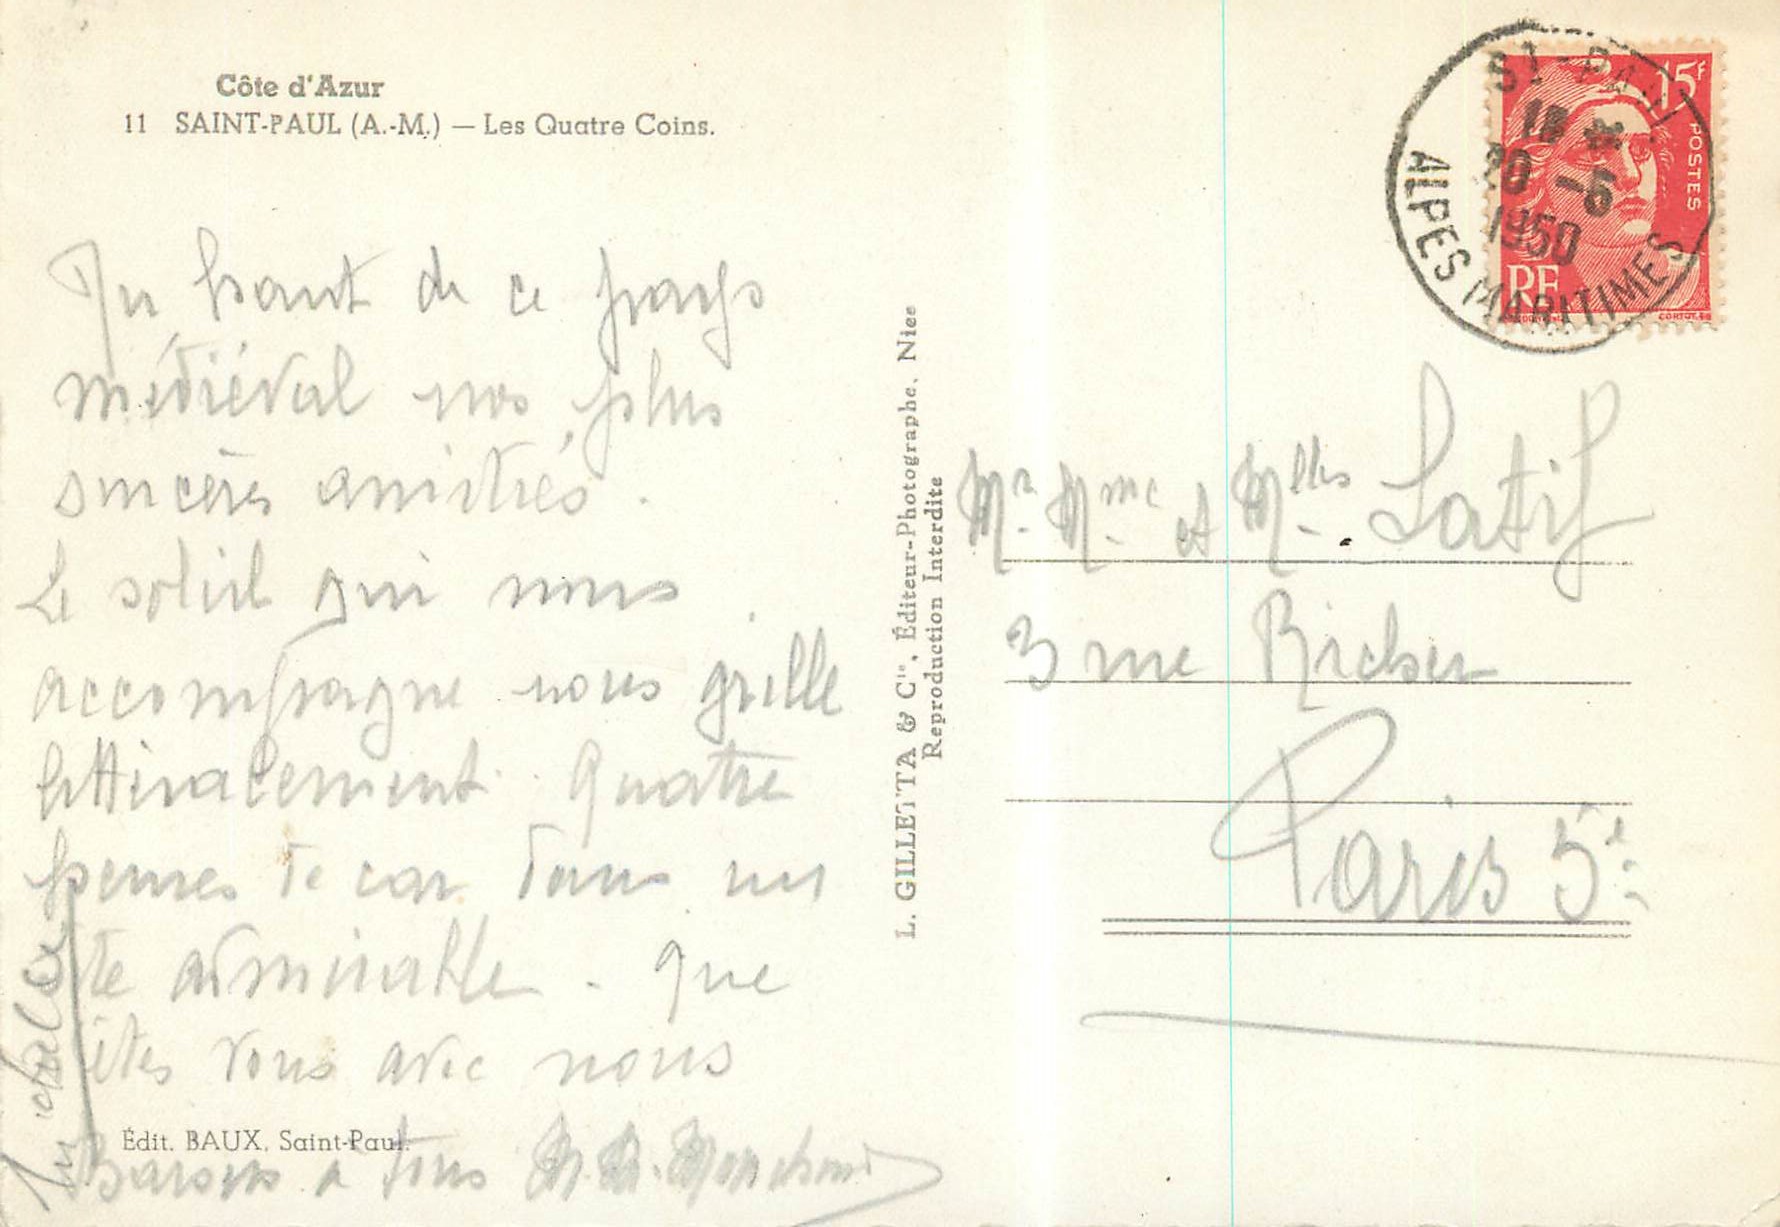 Côte d'Azur
11 SAINT-PAUL (A.-M.) — Les Quatre Coins.
Du haut de ce pays
médiéval nos plus
sincères amitiés.
Le soleil qui nous
accompagne nous grille
littéralement. Quatre
heures de car dans un
site admirable. Que
êtes vous avec nous
Baisers à tous
Édit. BAUX, Saint-Paul.
L. GILLETTA & Cie, Éditeur-Photographe, Nice
Reproduction Interdite
ST-PAUL
18
20 -6
1950
ALPES MARITIMES
15F
POSTES
RF
Mr. Mme et Mlles Latif
3 rue Richer
Paris 5e